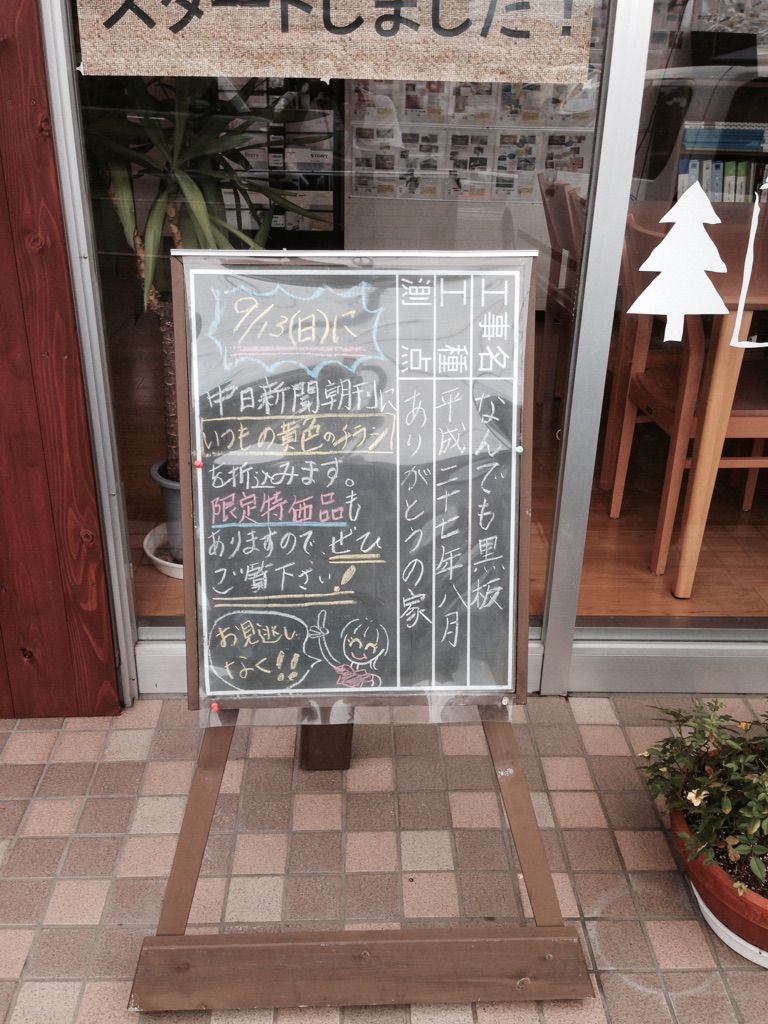 スタートしました!
工事名 なんでも黒板
工種 平成二十七年八月
測点 ありがとうの家
9/13(日)に
中日新聞朝刊に
いつもの黄色のチラシ
を折込みます。
限定特価品も
ありますので、ぜひ
ご覧下さい!
お見逃し
なく!!